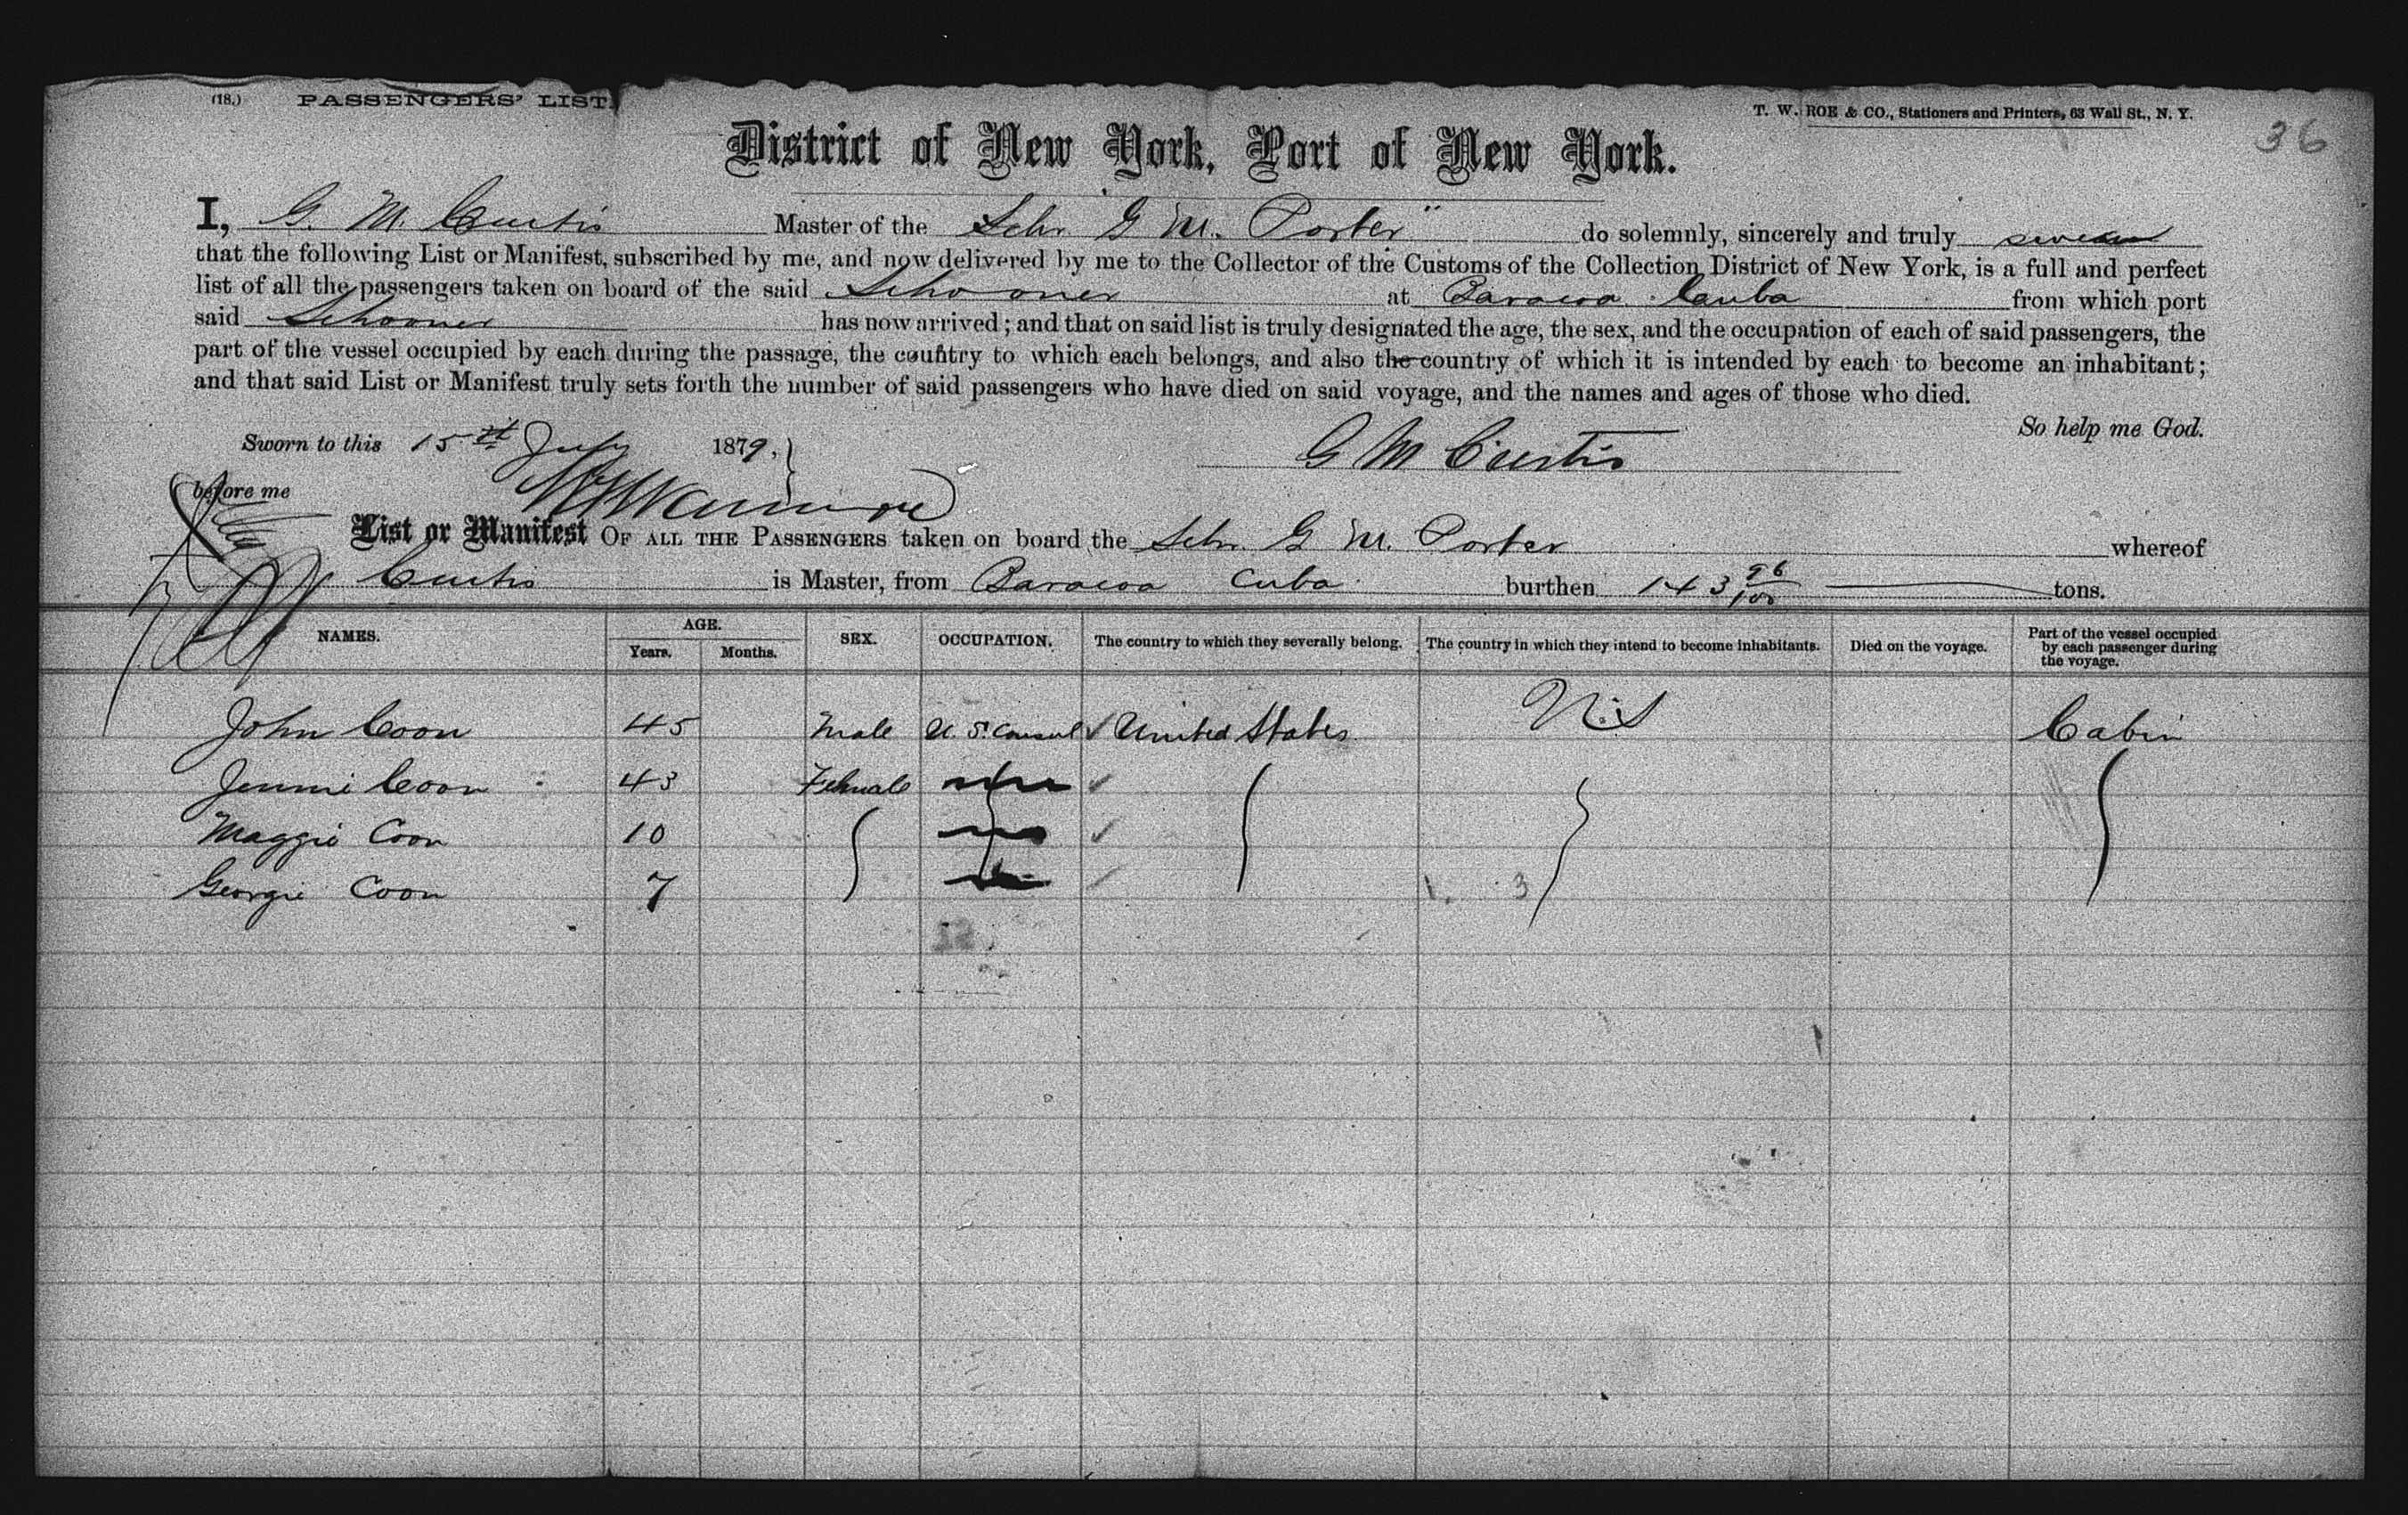 (18.) PASSENGERS' LIST.
T. W. ROE & CO., Stationers and Printers, 63 Wall St., N. Y.
36
District of New York, Port of New York.
I, G. M. Curtis Master of the Schr "G M. Porter" do solemnly, sincerely and truly swear
that the following List or Manifest, subscribed by me, and now delivered by me to the Collector of the Customs of the Collection District of New York, is a full and perfect
list of all the passengers taken on board of the said Schooner at Baracoa Cuba from which port
said Schooner has now arrived; and that on said list is truly designated the age, the sex, and the occupation of each of said passengers, the
part of the vessel occupied by each during the passage, the country to which each belongs, and also the country of which it is intended by each to become an inhabitant;
and that said List or Manifest truly sets forth the number of said passengers who have died on said voyage, and the names and ages of those who died.
So help me God.
Sworn to this 15th July 1879,
G M Curtis
before me
List or Manifest OF ALL THE PASSENGERS taken on board the Schr. G M. Porter whereof
Curtis is Master, from Baracoa Cuba burthen 143 96/100 tons.
NAMES. AGE. Years. Months. SEX. OCCUPATION. The country to which they severally belong. The country in which they intend to become inhabitants. Died on the voyage. Part of the vessel occupied by each passenger during the voyage.
John Coon 45 Male U. S. Consul ✓ United States U.S Cabin
Jennie Coon 43 Female ✓
Maggie Coon 10 ✓
Georgie Coon 7 ✓ 3